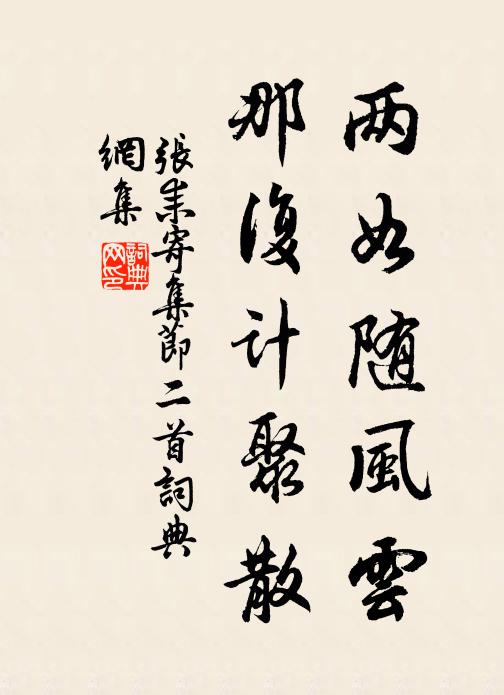 两如随風雲
那復计聚散
張耒寄集節二首詞典
網集
詞典
网印